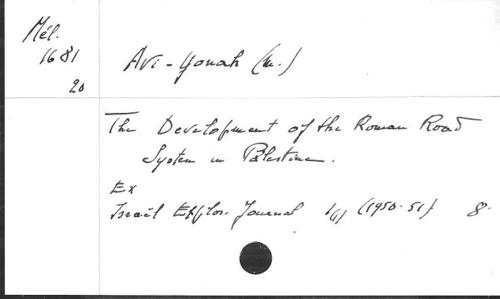 Mél.
1681
20
Avi-Yonah (M.)
The Development of the Roman Road
System in Palestine.
Ex
Israël Explor. Journal 1(1) (1950-51) 8.